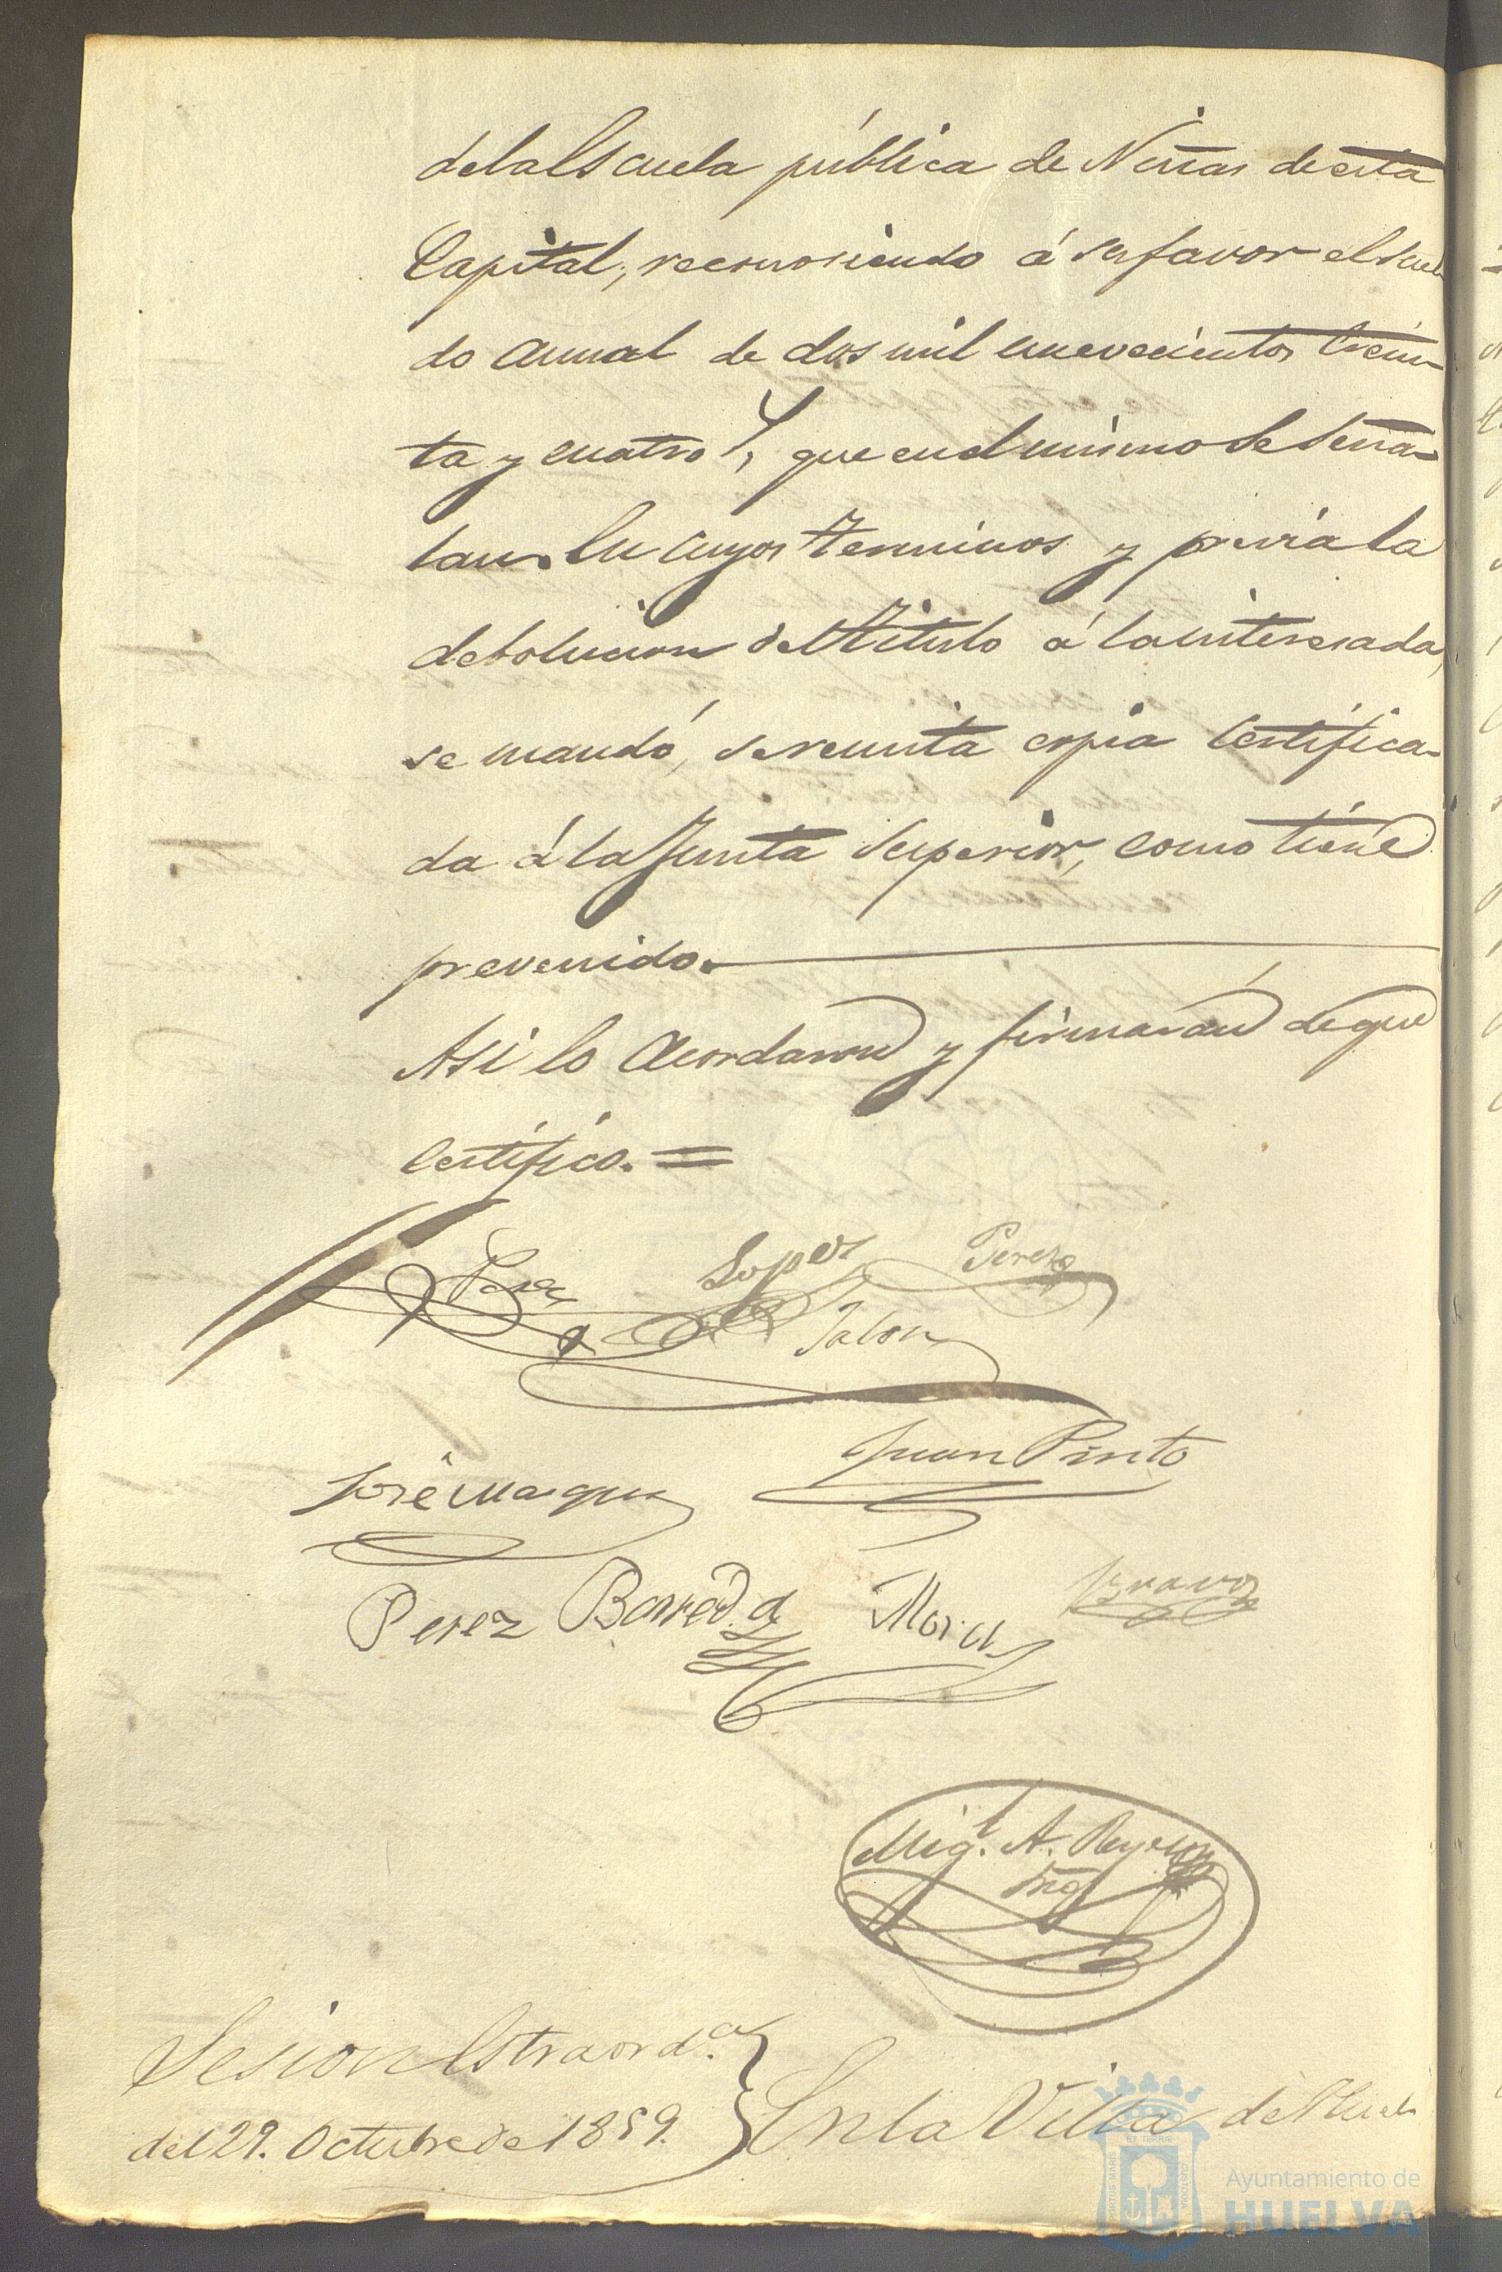 de la Escuela pública de Niñas de esta
Capital, reconosiendo á su favor el suel
do anual de dos mil nuevecientos trein-
ta y cuatro que en el mismo se seña-
lan. En cuyos terminos y previa la
debolucion del Titulo á la interesada,
se mandó, se remita copia certifica-
da á la Junta Superior, como tiene
prevenido.
Asi lo acordaron y firmarán de que
certifico. =
Lopez Perez
Jalon
Juan Pinto
José Marquez
Perez Barreda Mora Bravo
Mig.l A.
Sesion Estraord.a
del 29. Octubre de 1859. } En la Villa de Huel
Ayuntamiento de
HUELVA